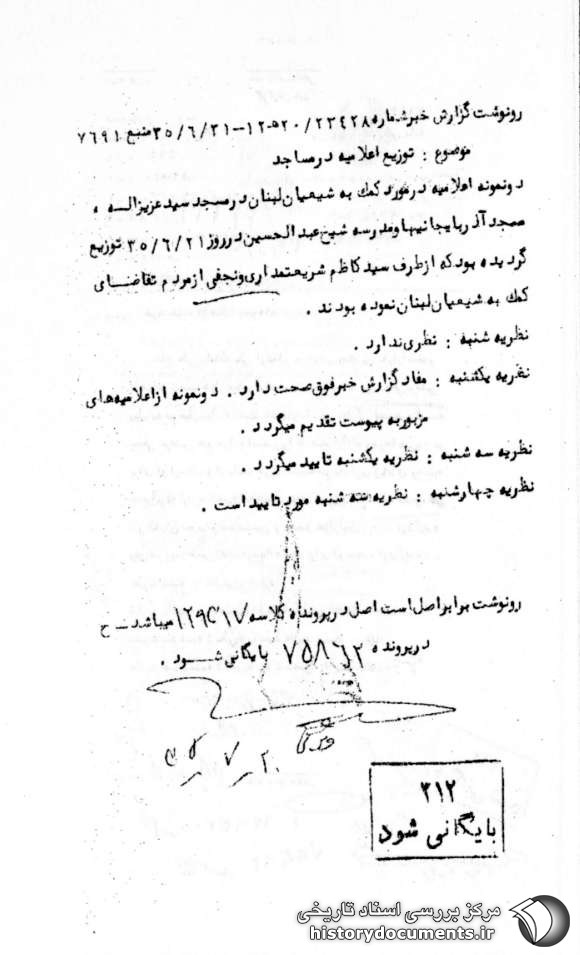 رونوشت گزارش خبر شماره ۲۳۴۲۸/ ۵۲۰-۱۲--۳۵/۶/۳۱ منبع ۷۶۹۱
موضوع : توزیع اعلامیه در مساجد
دو نمونه اعلامیه در مورد کمک به شیعیان لبنان در مسجد سید عزیزاله ،
مسجد آذربایجانیها و مدرسه شیخ عبدالحسین در روز ۳۵/۶/۲۱ توزیع
گردیده بود که از طرف سید کاظم شریعتمداری و نجفی از مردم تقاضای
کمک به شیعیان لبنان نموده بودند .
نظریه شنبه : نظری ندارد .
نظریه یکشنبه : مفاد گزارش خبر فوق صحت دارد . دو نمونه از اعلامیه های
مزبور به پیوست تقدیم میگردد .
نظریه سه شنبه : نظریه یکشنبه تایید میگردد .
نظریه چهارشنبه : نظریه سه شنبه مورد تایید است .
رونوشت برابر اصل است اصل در پرونده کلاسه میباشد ـ ح
در پرونده ۷۵۸۶۲ بایگانی شود .
۳۱۲
بایگانی شود
مرکز بررسی اسناد تاریخی
historydocuments.ir